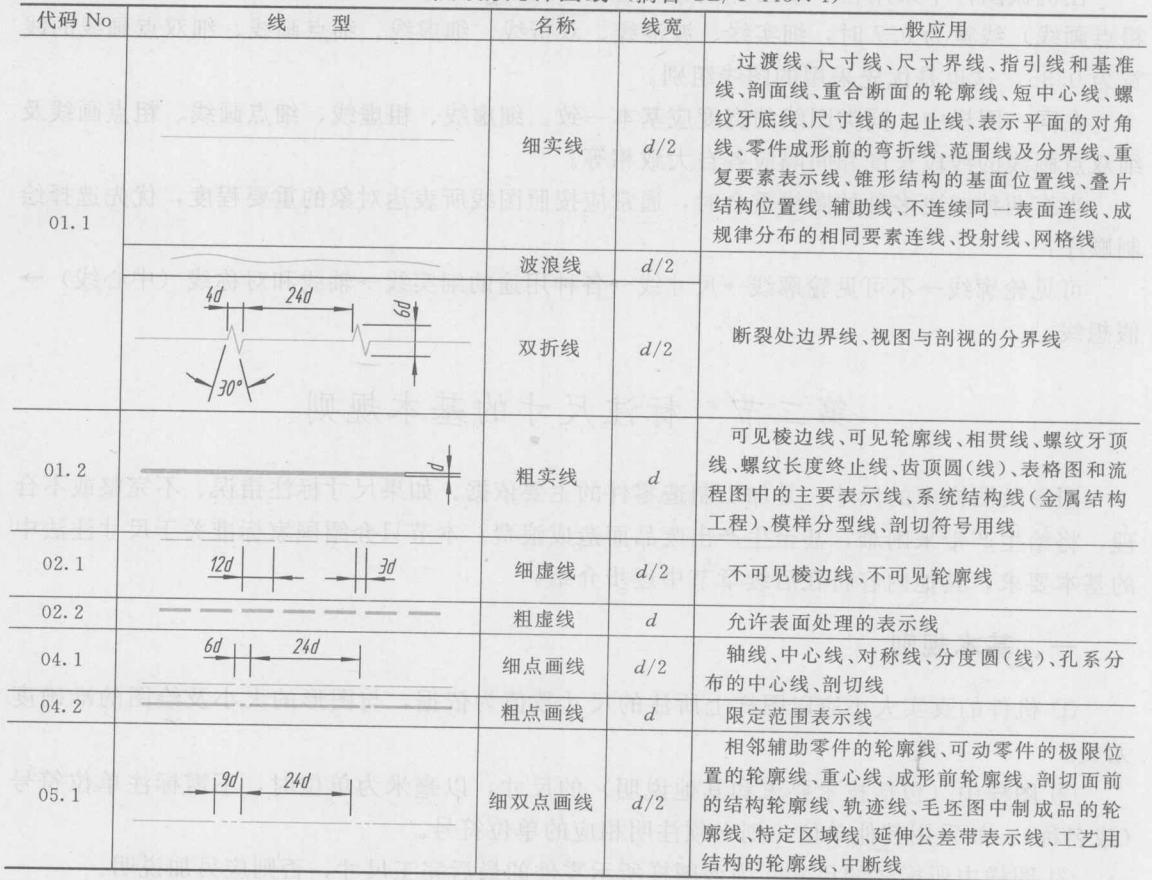 代码 No 线 型 名称 线宽 一般应用
过渡线、尺寸线、尺寸界线、指引线和基准
线、剖面线、重合断面的轮廓线、短中心线、螺
纹牙底线、尺寸线的起止线、表示平面的对角
细实线 d/2 线、零件成形前的弯折线、范围线及分界线、重
复要素表示线、锥形结构的基面位置线、叠片
01.1 结构位置线、辅助线、不连续同一表面连线、成
规律分布的相同要素连线、投射线、网格线
波浪线 d/2
4d 24d 6d
双折线 d/2 断裂处边界线、视图与剖视的分界线
30°
可见棱边线、可见轮廓线、相贯线、螺纹牙顶
01.2 d 粗实线 d 线、螺纹长度终止线、齿顶圆(线)、表格图和流
程图中的主要表示线、系统结构线(金属结构
工程)、模样分型线、剖切符号用线
02.1 12d 3d 细虚线 d/2 不可见棱边线、不可见轮廓线
02.2 粗虚线 d 允许表面处理的表示线
04.1 6d 24d 细点画线 d/2 轴线、中心线、对称线、分度圆(线)、孔系分
布的中心线、剖切线
04.2 粗点画线 d 限定范围表示线
相邻辅助零件的轮廓线、可动零件的极限位
置的轮廓线、重心线、成形前轮廓线、剖切面前
05.1 9d 24d 细双点画线 d/2 的结构轮廓线、轨迹线、毛坯图中制成品的轮
廓线、特定区域线、延伸公差带表示线、工艺用
结构的轮廓线、中断线